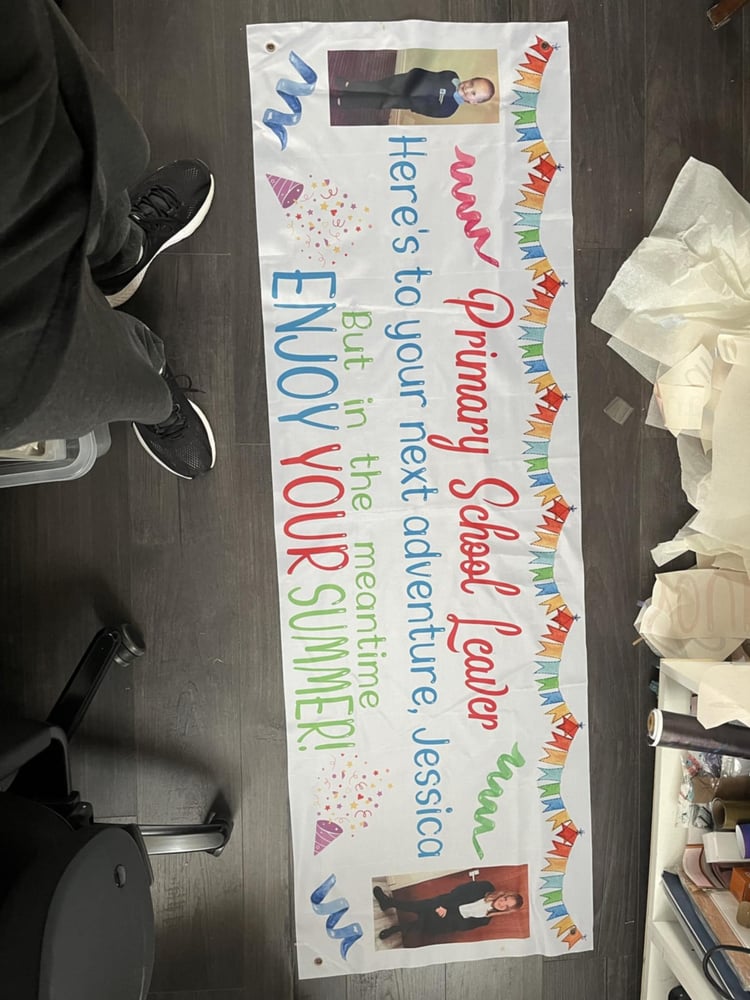 Primary School Leaver
Here's to your next adventure, Jessica
But in the meantime
ENJOY YOUR SUMMER!